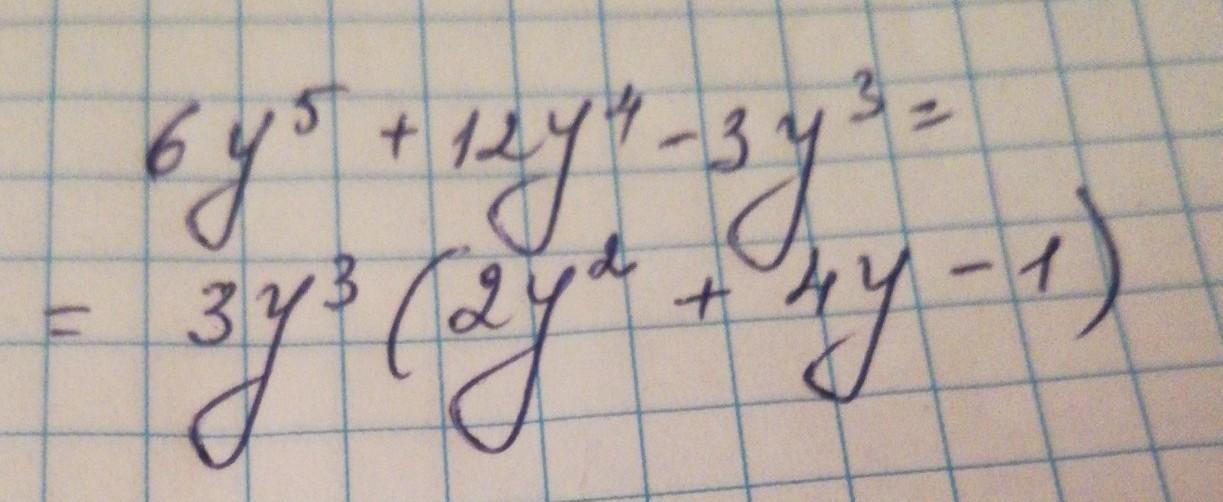 6y⁵ + 12y⁴ - 3y³ =
= 3y³ (2y² + 4y - 1)